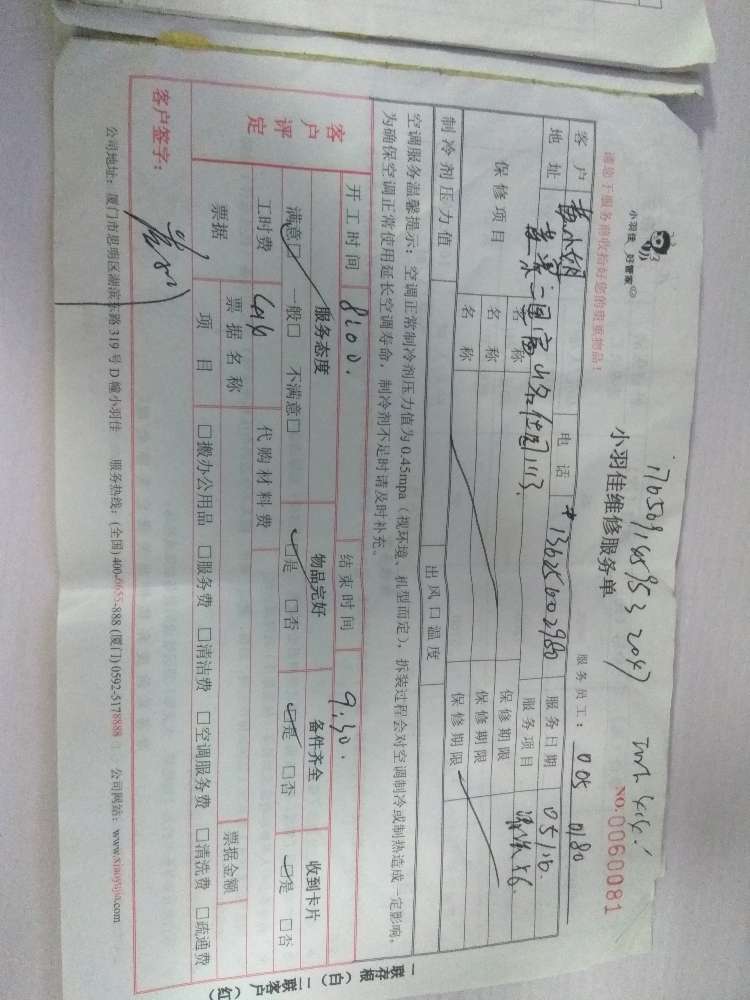 请您于服务前收拾好您的贵重物品!
小羽佳 好管家
小羽佳维修服务单
服务员工: 005 0180
NO.0060081
客户 电话 13625602980 服务日期 05/16.
地址 服务项目
保修项目 名称 保修期限
名称 保修期限
名称 保修期限
制冷剂压力值 出风口温度
空调服务温馨提示:空调正常制冷剂压力值为0.45mpa(视环境、机型而定),拆装过程会对空调制冷或制热造成一定影响,
为确保空调正常使用延长空调寿命,制冷剂不足时请及时补充。
客户评定
开工时间 8:00. 结束时间 9:30.
服务态度 物品完好 备件齐全 收到卡片
满意□ 一般□ 不满意□ □是 □否 □是 □否 □是 □否
工时费 代购材料费
票据 票据名称 票据金额
项目 □搬办公用品 □服务费 □清洁费 □空调服务费 □清洗费 □疏通费
客户签字:
公司地址:厦门市思明区湖滨东路319号D幢小羽佳 服务热线:(全国)400-0655-888 (厦门)0592-5178888 公司网站:www.xiaoyujia.com
一联存根(白) 二联客户(红)